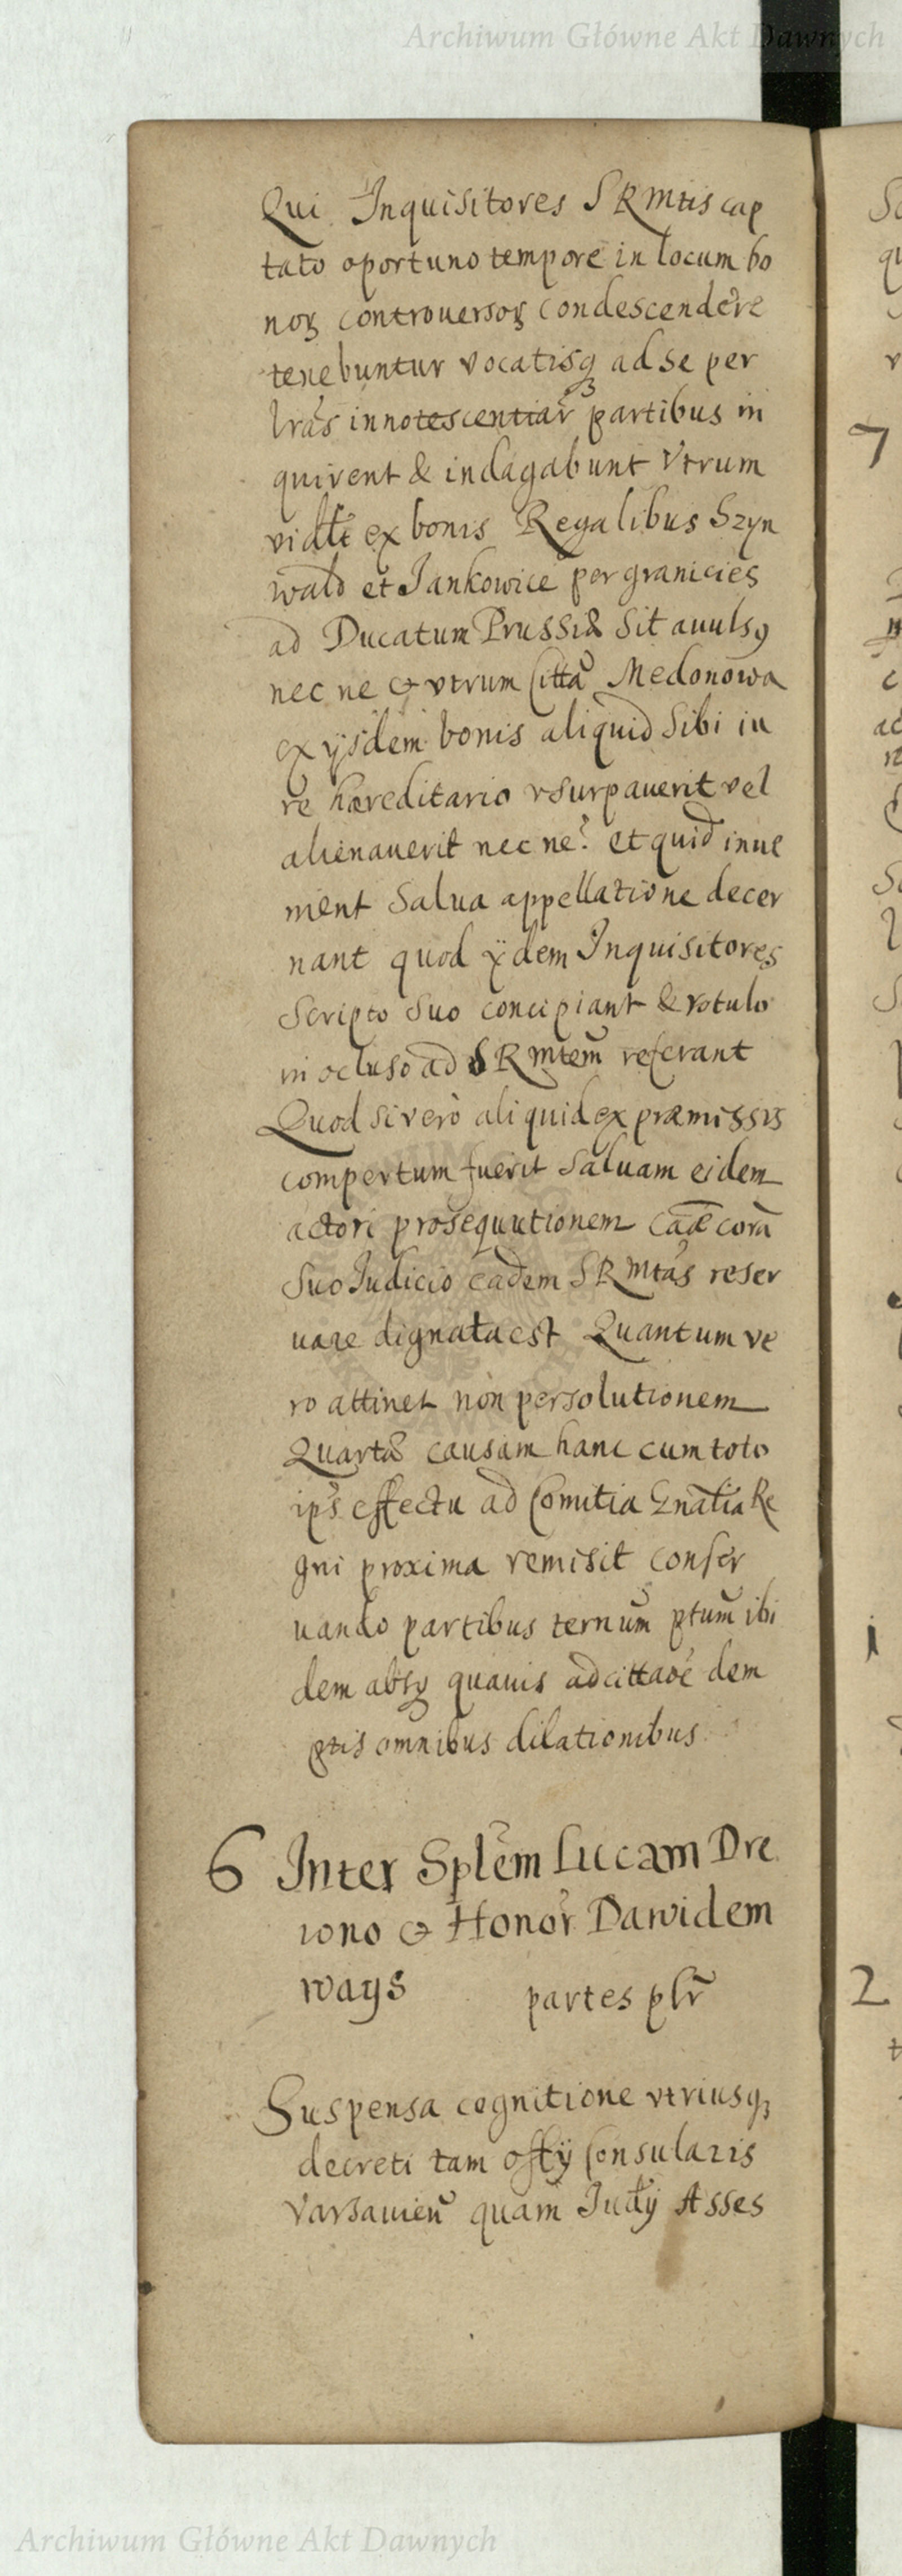 Archiwum Główne Akt Dawnych
Qui Inquisitores S R Mtis cap
tato oportuno tempore in locum bo
noꝝ controuersoꝝ condescendere
tenebuntur vocatisqꝫ ad se per
lrãs innotescentiar̃ partibus in
quirent & indagabunt Vtrum
ex bonis Regalibus Szyn
wald et Jankowice per granicies
ad Ducatum Prussiæ Sit auulsꝯ
nec ne & vtrum Citta᷈ Medonowa
ex ijsdem bonis aliquid Sibi iu
re hæreditario vsurpauerit vel
alienauerit nec ne? et quid inue
nient Salua appellatione decer
nant quod ijdem Inquisitores
Scripto Suo concipiant & rotulo
in ocluso ad S R Mtem referant
Quod si verò aliquid ex præmissis
compertum fuerit Saluam eidem
actori prosequutionem Cãæ corã
Suo Judicio eadem S R Mtas reser
uare dignata est Quantum ve
ro attinet non persolutionem
Quartæ causam hanc cum toto
ips effectu ad Comitia Gnãlia Re
gni proxima remisit conser
uando partibus ternum ptum ibi
dem absqꝫ quauis adcittaõe dem
ptis omnibus dilationibus
6 Inter Splẽm Lucam Dre
wno & Honor̃ Dawidem
ways partes plr̃
Suspensa cognitione vtriusqꝫ
decreti tam offij Consularis
Varsauieñ quam Judij Asses
7
2
Archiwum Główne Akt Dawnych